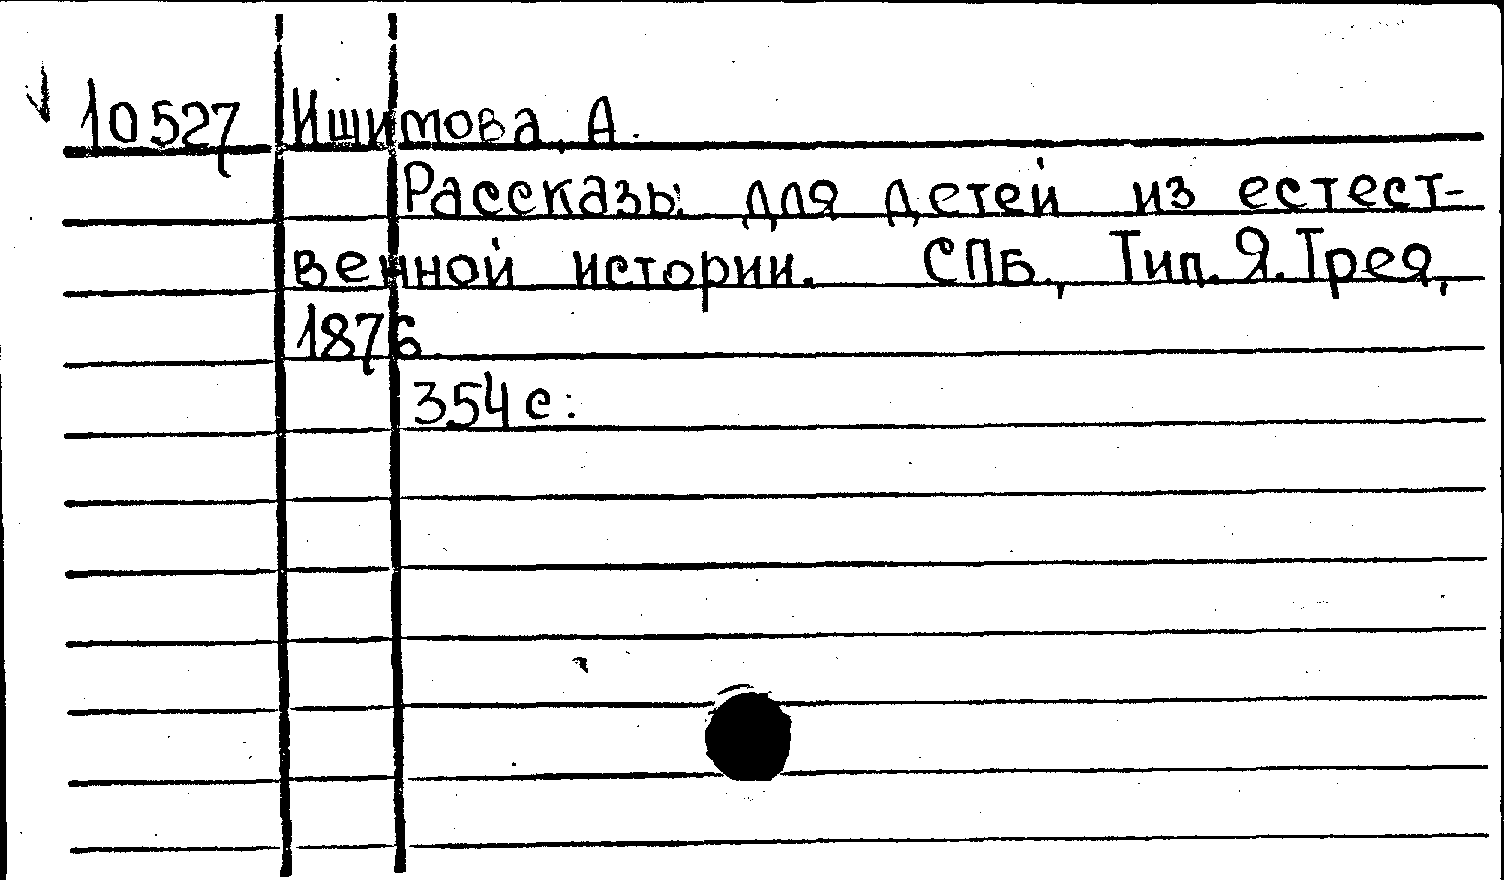 10527 Ишимова, А.
Рассказы для детей из естест-
венной истории. СПБ., Тип. Я. Трея,
1876
354 с.